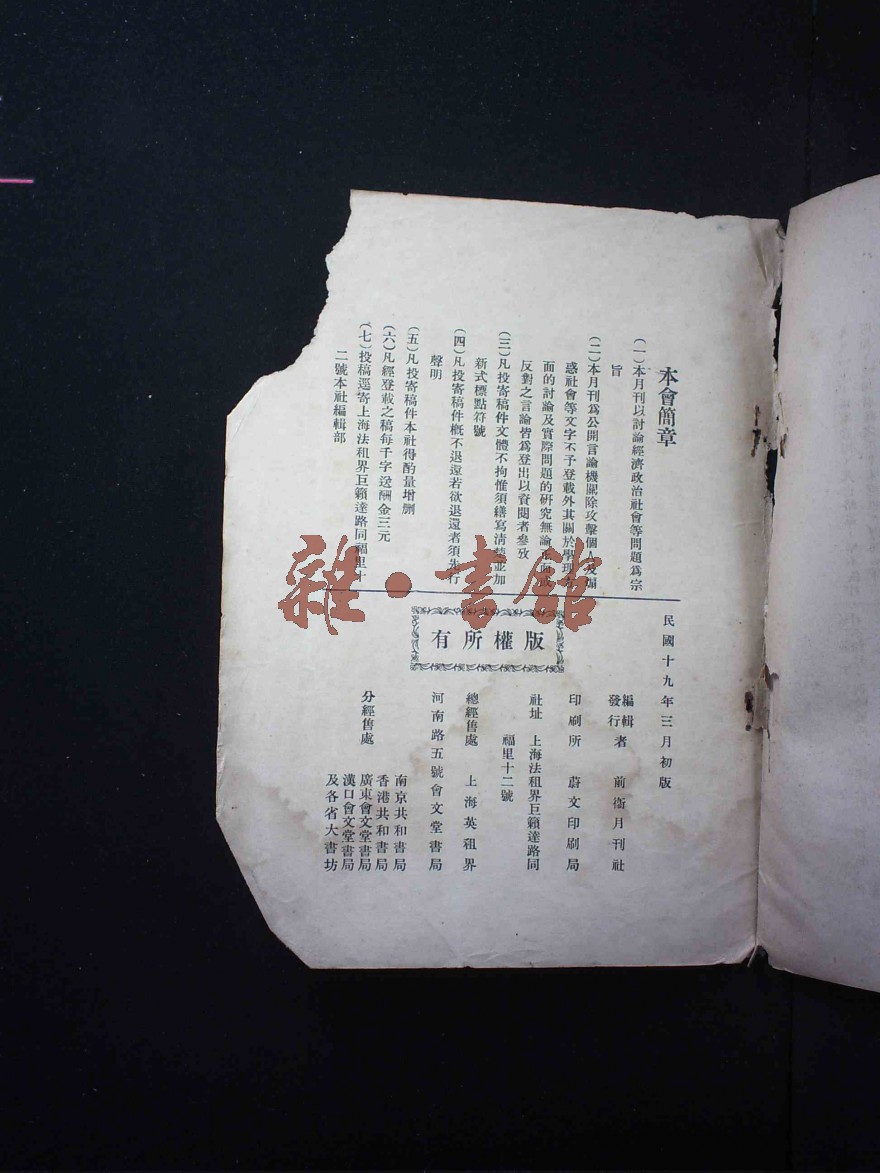 本會簡章
(一)本月刊以討論經濟政治社會等問題爲宗
旨
(二)本月刊爲公開言論機關除攻擊個人及煽
惑社會等文字不予登載外其關於學理方
面的討論及實際問題的研究無論正面或
反對之言論皆爲登出以資閱者參攷
(三)凡投寄稿件文體不拘惟須繕寫清楚並加
新式標點符號
(四)凡投寄稿件槪不退還若欲退還者須先行
聲明
(五)凡投寄稿件本社得酌量增删
(六)凡經登載之稿每千字送酬金三元
(七)投稿逕寄上海法租界巨籟達路同福里十
二號本社編輯部
民國十九年三月初版
編輯發行者 前衞月刊社
印刷所 蔚文印刷局
社址 上海法租界巨籟達路同
福里十二號
總經售處 上海英租界
河南路五號會文堂書局
分經售處
南京共和書局
香港共和書局
廣東會文堂書局
漢口會文堂書局
及各省大書坊
版權所有
雜·書館